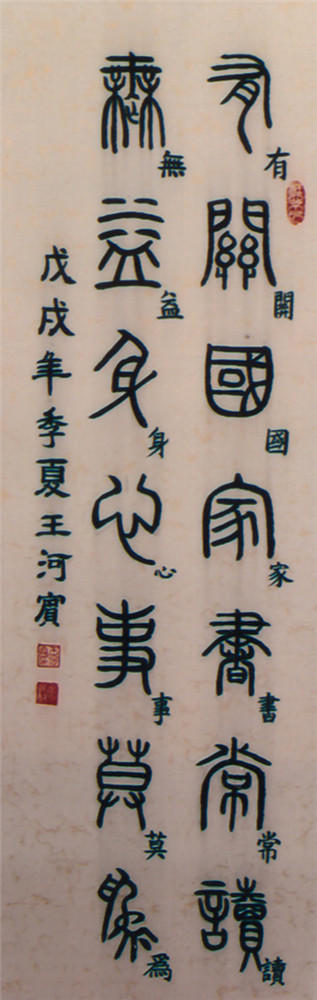 有關國家書常讀
有關國家書常讀
無益身心事莫為
無益身心事莫爲
戊戌年季夏王河賓